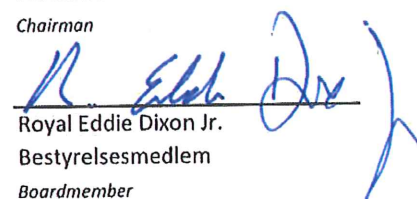 Chairman
Royal Eddie Dixon Jr.
Bestyrelsesmedlem
Boardmember